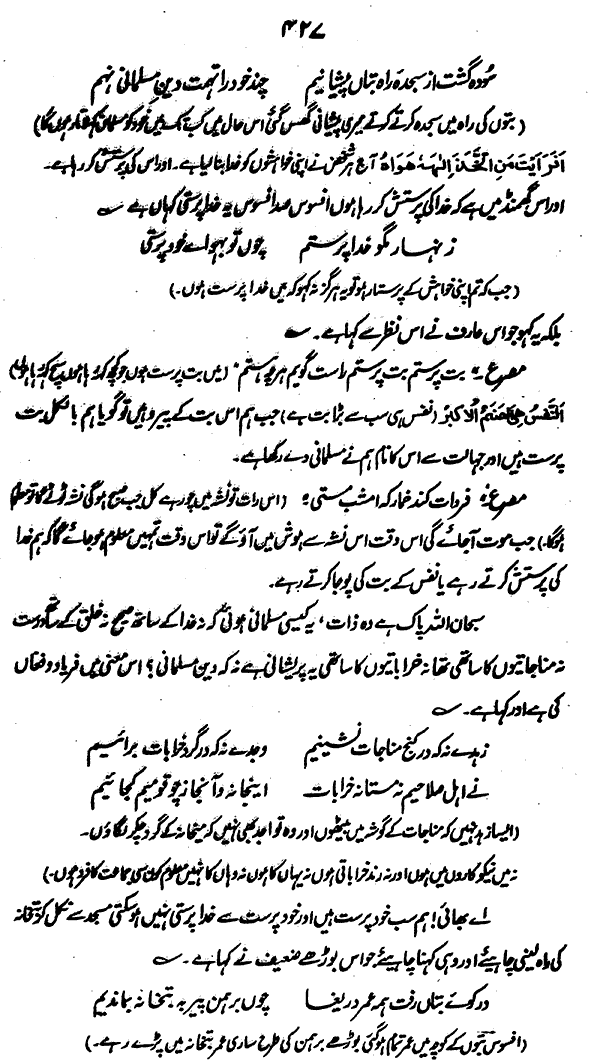 ۴۲۷
سُودہ گشت از سجدہ راہ بتاں پیشانیم چند خود را تہمت دین مسلمانی نہم
(بتوں کی راہ میں سجدہ کرتے کرتے میری پیشانی گھس گئی اس حال میں کب تک میں خود کو مسلمان کہتا ہوں گا)
اَفَرَاَیْتَ مَنِ اتَّخَذَ اِلٰہَہٗ ھَوَاہُ آج ہر شخص نے اپنی خواہشوں کو خدا بنا لیا ہے۔ اور اس کی پرستش کر رہا ہے۔
اور اس گھمنڈ میں ہے کہ خدا کی پرستش کر رہا ہوں افسوس صد افسوس یہ خدا پرستی کہاں ہے ؎
زنہار مگو خدا پرستم چوں تو بہوائے خود پرستی
(جب کہ تم اپنی خواہش کے پرستار ہو تو یہ ہرگز نہ کہو کہ میں خدا پرست ہوں۔)
بلکہ یہ کہو جو اس عارف نے اس نظر سے کہا ہے۔ ؎
مصرع: بت پرستم بت پرستم راست گویم ہرچہ ہستم، (میں بت پرست ہوں جو کچھ کہہ رہا ہوں سچ کہہ رہا ہوں)
اَلنَّفْسُ ھِیَ الصَّنَمُ الْاَکْبَرُ (نفس ہی سب سے بڑا بت ہے) جب ہم اس بت کے پیرو ہیں تو گویا ہم بالکل بت
پرست ہیں اور جہالت سے اس کا نام ہم نے مسلمانی دے رکھا ہے۔
مصرع: فردات کند خمار کہ امشب مستی؛ (اس رات تو نشہ میں چور ہے کل جب صبح ہوگی نشہ ٹوٹے گا تو معلوم
ہوگا۔) جب موت آجائے گی اس وقت اس نشہ سے ہوش میں آؤ گے تو اس وقت تمہیں معلوم ہو جائے گا کہ ہم خدا
کی پرستش کرتے رہے یا نفس کے بت کی پوجا کرتے رہے۔
سبحان اللہ پاک ہے وہ ذات، یہ کیسی مسلمانی ہوئی کہ نہ خدا کے ساتھ صحیح نہ خلق کے ساتھ درست
نہ مناجاتیوں کا ساتھی تھا نہ خراباتیوں کا ساتھی یہ پریشانی ہے نہ کہ دین مسلمانی؟ اس معنی میں فریاد و فغاں
کی ہے اور کہا ہے۔ ؎
زہدے نہ کہ در کنج مناجات نشینیم وجدے نہ کہ در گرد خرابات برائیم
نے اہل صلاحیم نہ مستانہ خرابات اینجا نہ و آنجا نہ چو قومیم کجائیم
(ایسا زہد نہیں کہ مناجات کے گوشہ میں بیٹھوں اور وہ تواجد بھی نہیں کہ میخانہ کے گرد چکر لگاؤں۔
نہ میں نیکو کاروں میں ہوں اور نہ رند خراباتی ہوں نہ یہاں کا ہوں نہ وہاں کا نہیں معلوم کون سی جماعت کا فرد ہوں۔)
اے بھائی! ہم سب خود پرست ہیں اور خود پرست سے خدا پرستی نہیں ہو سکتی مسجد سے نکل کر بتخانہ
کی راہ لینی چاہیئے اور وہی کہنا چاہیئے جو اس بوڑھے ضعیف نے کہا ہے۔ ؎
در کوئے بتاں رفت ہمہ عمر دریغا چوں برہمن پیر بہ بتخانہ بماندیم
(افسوس بتوں کے کوچہ میں عمر تمام ہو گئی بوڑھے برہمن کی طرح ساری عمر بتخانہ میں پڑے رہے۔)